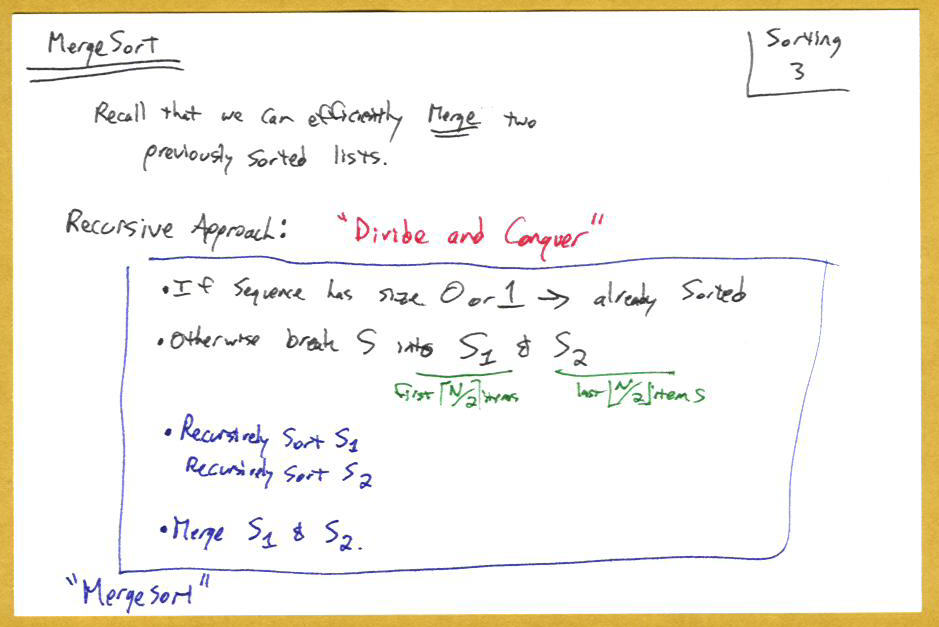 MergeSort
Sorting
3
Recall that we can efficiently Merge two
previously sorted lists.
Recursive Approach: "Divide and Conquer"
• If sequence has size 0 or 1 → already sorted
• Otherwise break S into S₁ & S₂
first ⌈N/2⌉ items last ⌊N/2⌋ items
• Recursively sort S₁
Recursively sort S₂
• Merge S₁ & S₂.
"MergeSort"